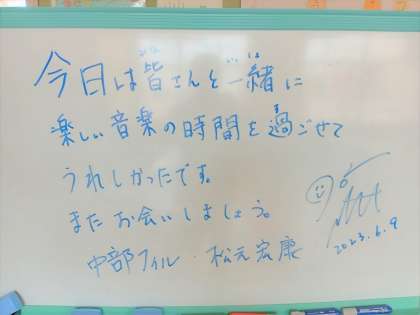 今日は皆さんと一緒に
楽しい音楽の時間を過ごせて
うれしかったです。
またお会いしましょう。
中部フィル・松元宏康
2023.6.9